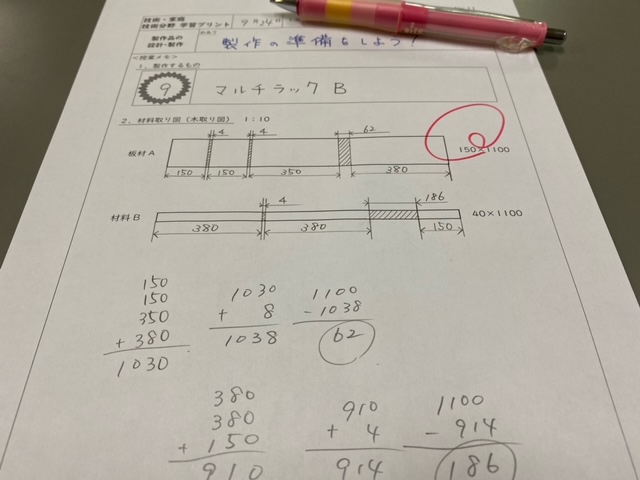 技術・家庭
技術分野 学習プリント
製作品の
設計・製作
製作の準備をしよう!
<授業メモ>
1．製作するもの
9
マルチラックB
2．材料取り図（木取り図） 1：10
4 4 62
板材A
150×1100
150 150 350 380
4 186
材料B
40×1100
380 380 150
150
150
350
+ 380
1030
1030
+ 8
1038
1100
- 1038
62
380
380
+ 150
910
910
+ 4
914
1100
- 914
186